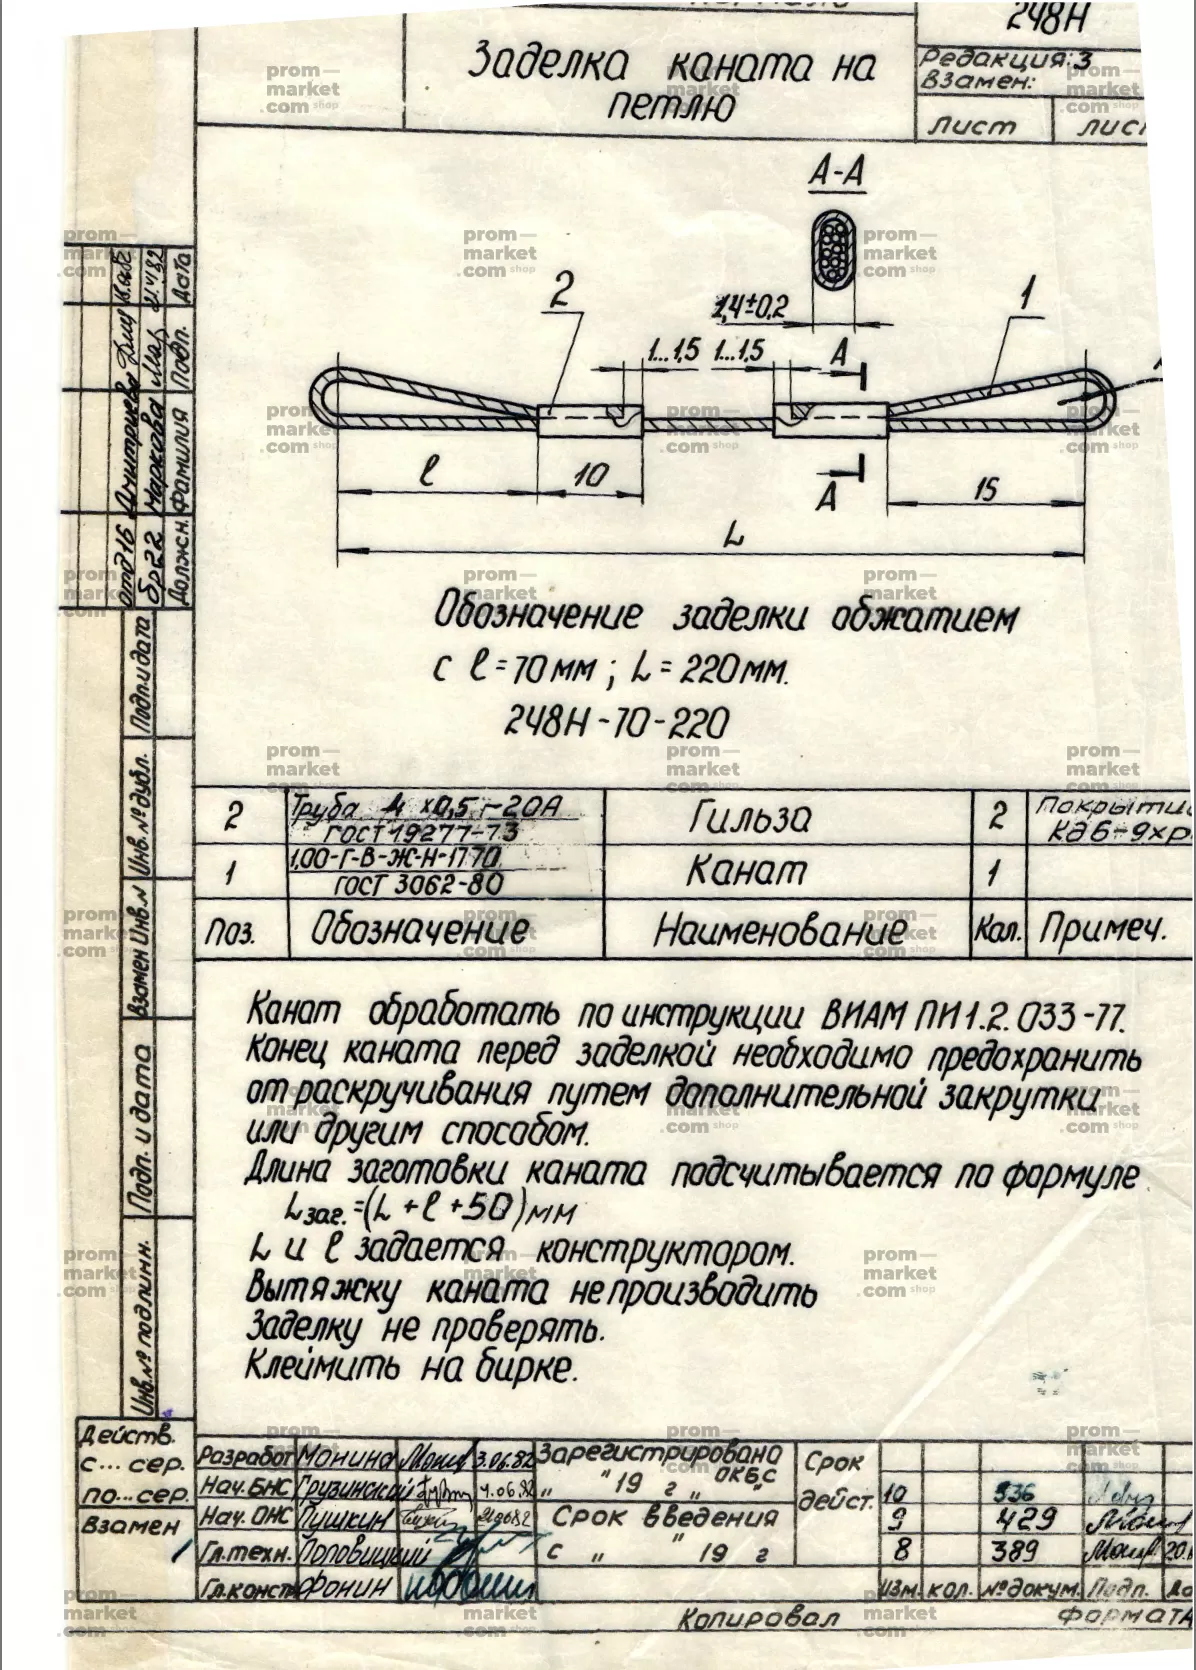 248Н
Заделка каната на
петлю
Редакция: 3
Взамен:
Лист
А-А
2
1
2,4±0,2
1...1,5 1...1,5
А
ℓ
10
А
15
L
Обозначение заделки обжатием
с ℓ=70мм; L=220мм.
248Н-70-220
2 Труба 4х0,5-20А Гильза 2
ГОСТ 19277-73 Кд6-9хр
1 1,00-Г-В-Ж-Н-1770 Канат 1
ГОСТ 3062-80
Поз. Обозначение Наименование Кол. Примеч.
Канат обработать по инструкции ВИАМ ПИ1.2.033-77.
Конец каната перед заделкой необходимо предохранить
от раскручивания путем дополнительной закрутки
или другим способом.
Длина заготовки каната подсчитывается по формуле
Lзаг.=(L+ℓ+50)мм
L и ℓ задается конструктором.
Вытяжку каната не производить
Заделку не проверять.
Клеймить на бирке.
отд16 Дмитриева
бр22 Маркова 21.4.82
Должн. Фамилия Подп. Дата
Подп. и дата
Инв.№ дубл.
Взамен Инв.№
Подп. и дата
Инв.№ подлинн.
Действ.
с... сер.
по...сер.
Взамен
Разработ Монина 3.06.82
Нач.БНС Грузинский 4.06.82
Нач.ОНС Пушкин
Гл.техн. Поповицкий
Гл.конст. Фонин
Зарегистрировано
" 19 г " ОКБС
Срок введения
с " " 19 г
Срок
дейст.
10 536
9 429
8 389 20.
Изм. кол. №докум. Подп.
Копировал
prom—
market
.com shop